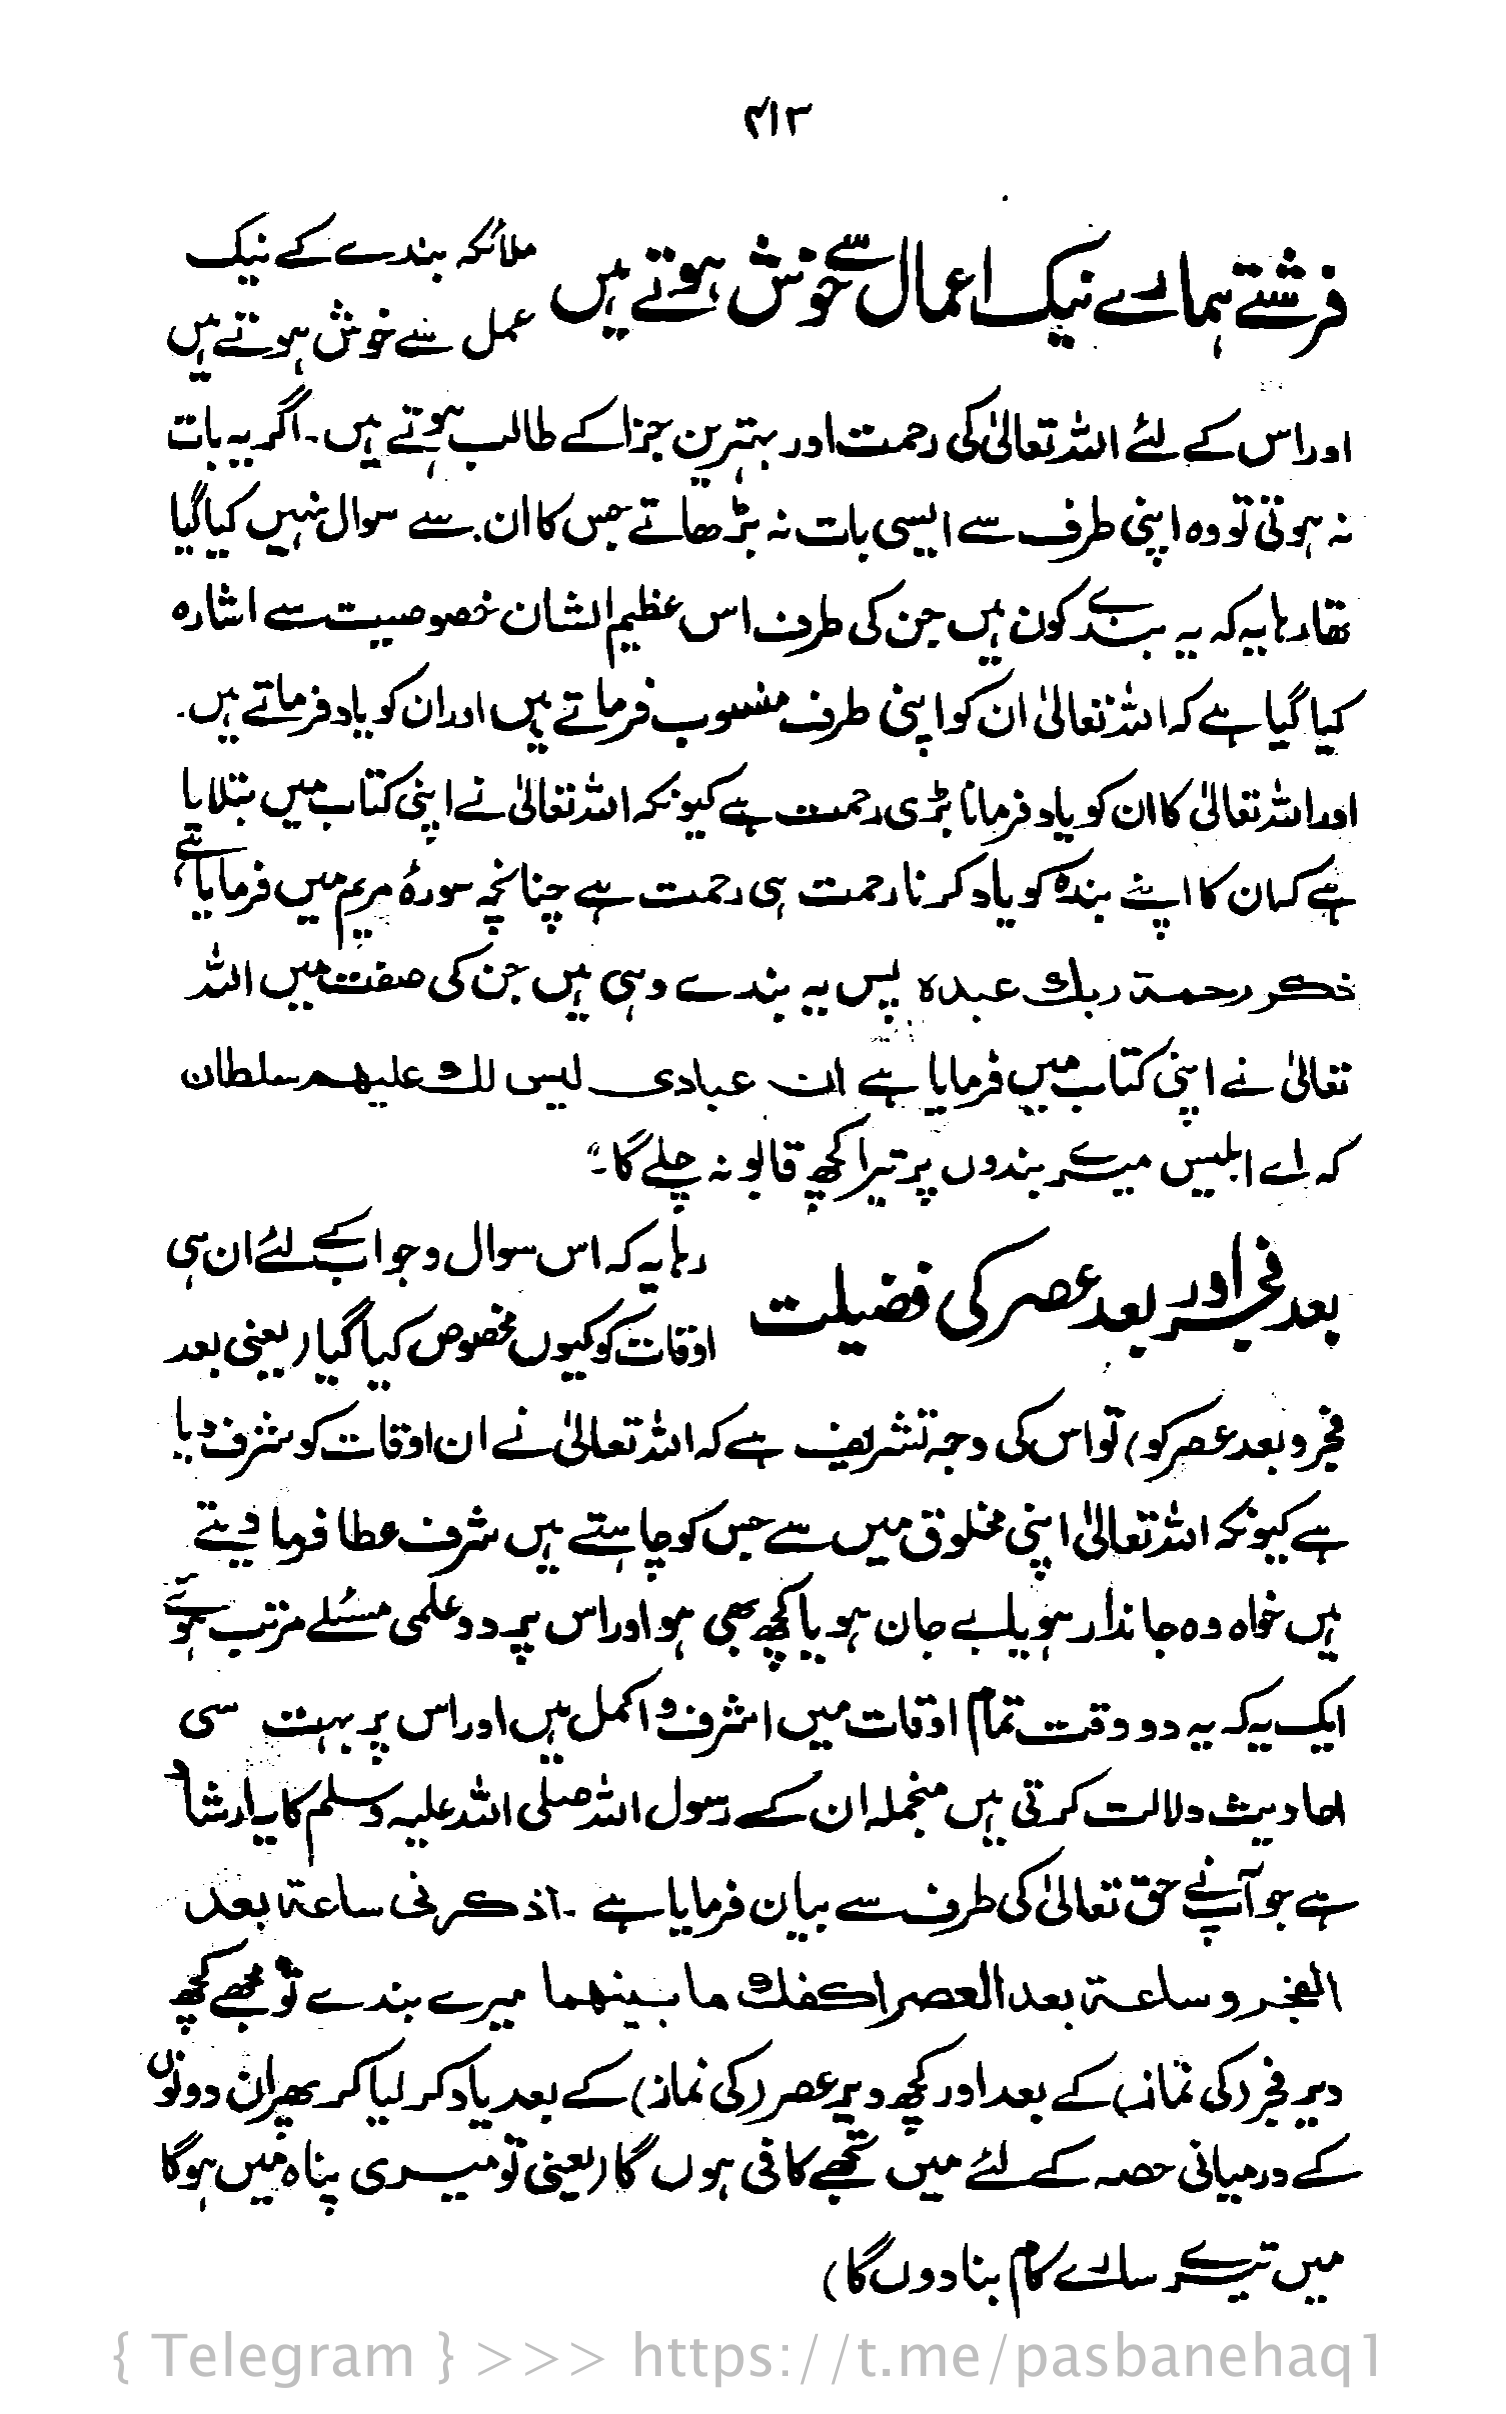 ۴۱۳
فرشتے ہمارے نیک اعمال سے خوش ہوتے ہیں
ملائکہ بندے کے نیک
عمل سے خوش ہوتے ہیں
اور اس کے لئے اللہ تعالیٰ کی رحمت اور بہترین جزا کے طالب ہوتے ہیں۔ اگر یہ بات
نہ ہوتی تو وہ اپنی طرف سے ایسی بات نہ بڑھاتے جس کا ان سے سوال نہیں کیا گیا
تھا رہا یہ کہ یہ بندے کون ہیں جن کی طرف اس عظیم الشان خصوصیت سے اشارہ
کیا گیا ہے کہ اللہ تعالیٰ ان کو اپنی طرف منسوب فرماتے ہیں اور ان کو یاد فرماتے ہیں۔
اور اللہ تعالیٰ کا ان کو یاد فرمانا بڑی رحمت ہے کیونکہ اللہ تعالیٰ نے اپنی کتاب میں بتلایا
ہے کہ ان کا اپنے بندہ کو یاد کرنا رحمت ہی رحمت ہے چنانچہ سورۂ مریم میں فرمایا ہے
ذکر رحمة ربك عبدہ پس یہ بندے وہی ہیں جن کی صفت میں اللہ
تعالیٰ نے اپنی کتاب میں فرمایا ہے ان عبادی لیس لك علیھم سلطان
کہ اے ابلیس میرے بندوں پر تیرا کچھ قابو نہ چلے گا۔"
بعد فجر اور بعد عصر کی فضیلت
رہا یہ کہ اس سوال و جواب کے لئے ان ہی
اوقات کو کیوں مخصوص کیا گیا (یعنی بعد
فجر و بعد عصر کو) تو اس کی وجہ تشریف ہے کہ اللہ تعالیٰ نے ان اوقات کو شرف دیا
ہے کیونکہ اللہ تعالیٰ اپنی مخلوق میں سے جس کو چاہتے ہیں شرف عطا فرما دیتے
ہیں خواہ وہ جاندار ہو یا بے جان ہو یا کچھ بھی ہو اور اس پر دو علمی مسئلے مرتب ہوئے
ایک یہ کہ یہ دو وقت تمام اوقات میں اشرف و اکمل ہیں اور اس پر بہت سی
احادیث دلالت کرتی ہیں منجملہ ان کے رسول اللہ صلی اللہ علیہ وسلم کا یہ ارشاد
ہے جو آپ نے حق تعالیٰ کی طرف سے بیان فرمایا ہے۔ اذکرنی ساعة بعد
الفجر و ساعة بعد العصر اکفك ما بینھما میرے بندے تو مجھے کچھ
دیر فجر (کی نماز) کے بعد اور کچھ دیر عصر (کی نماز) کے بعد یاد کر لیا کر پھر ان دونوں
کے درمیانی حصہ کے لئے میں تجھے کافی ہوں گا (یعنی تو میری پناہ میں ہوگا
میں تیرے سارے کام بنا دوں گا)
{ Telegram } >>> https://t.me/pasbanehaq1